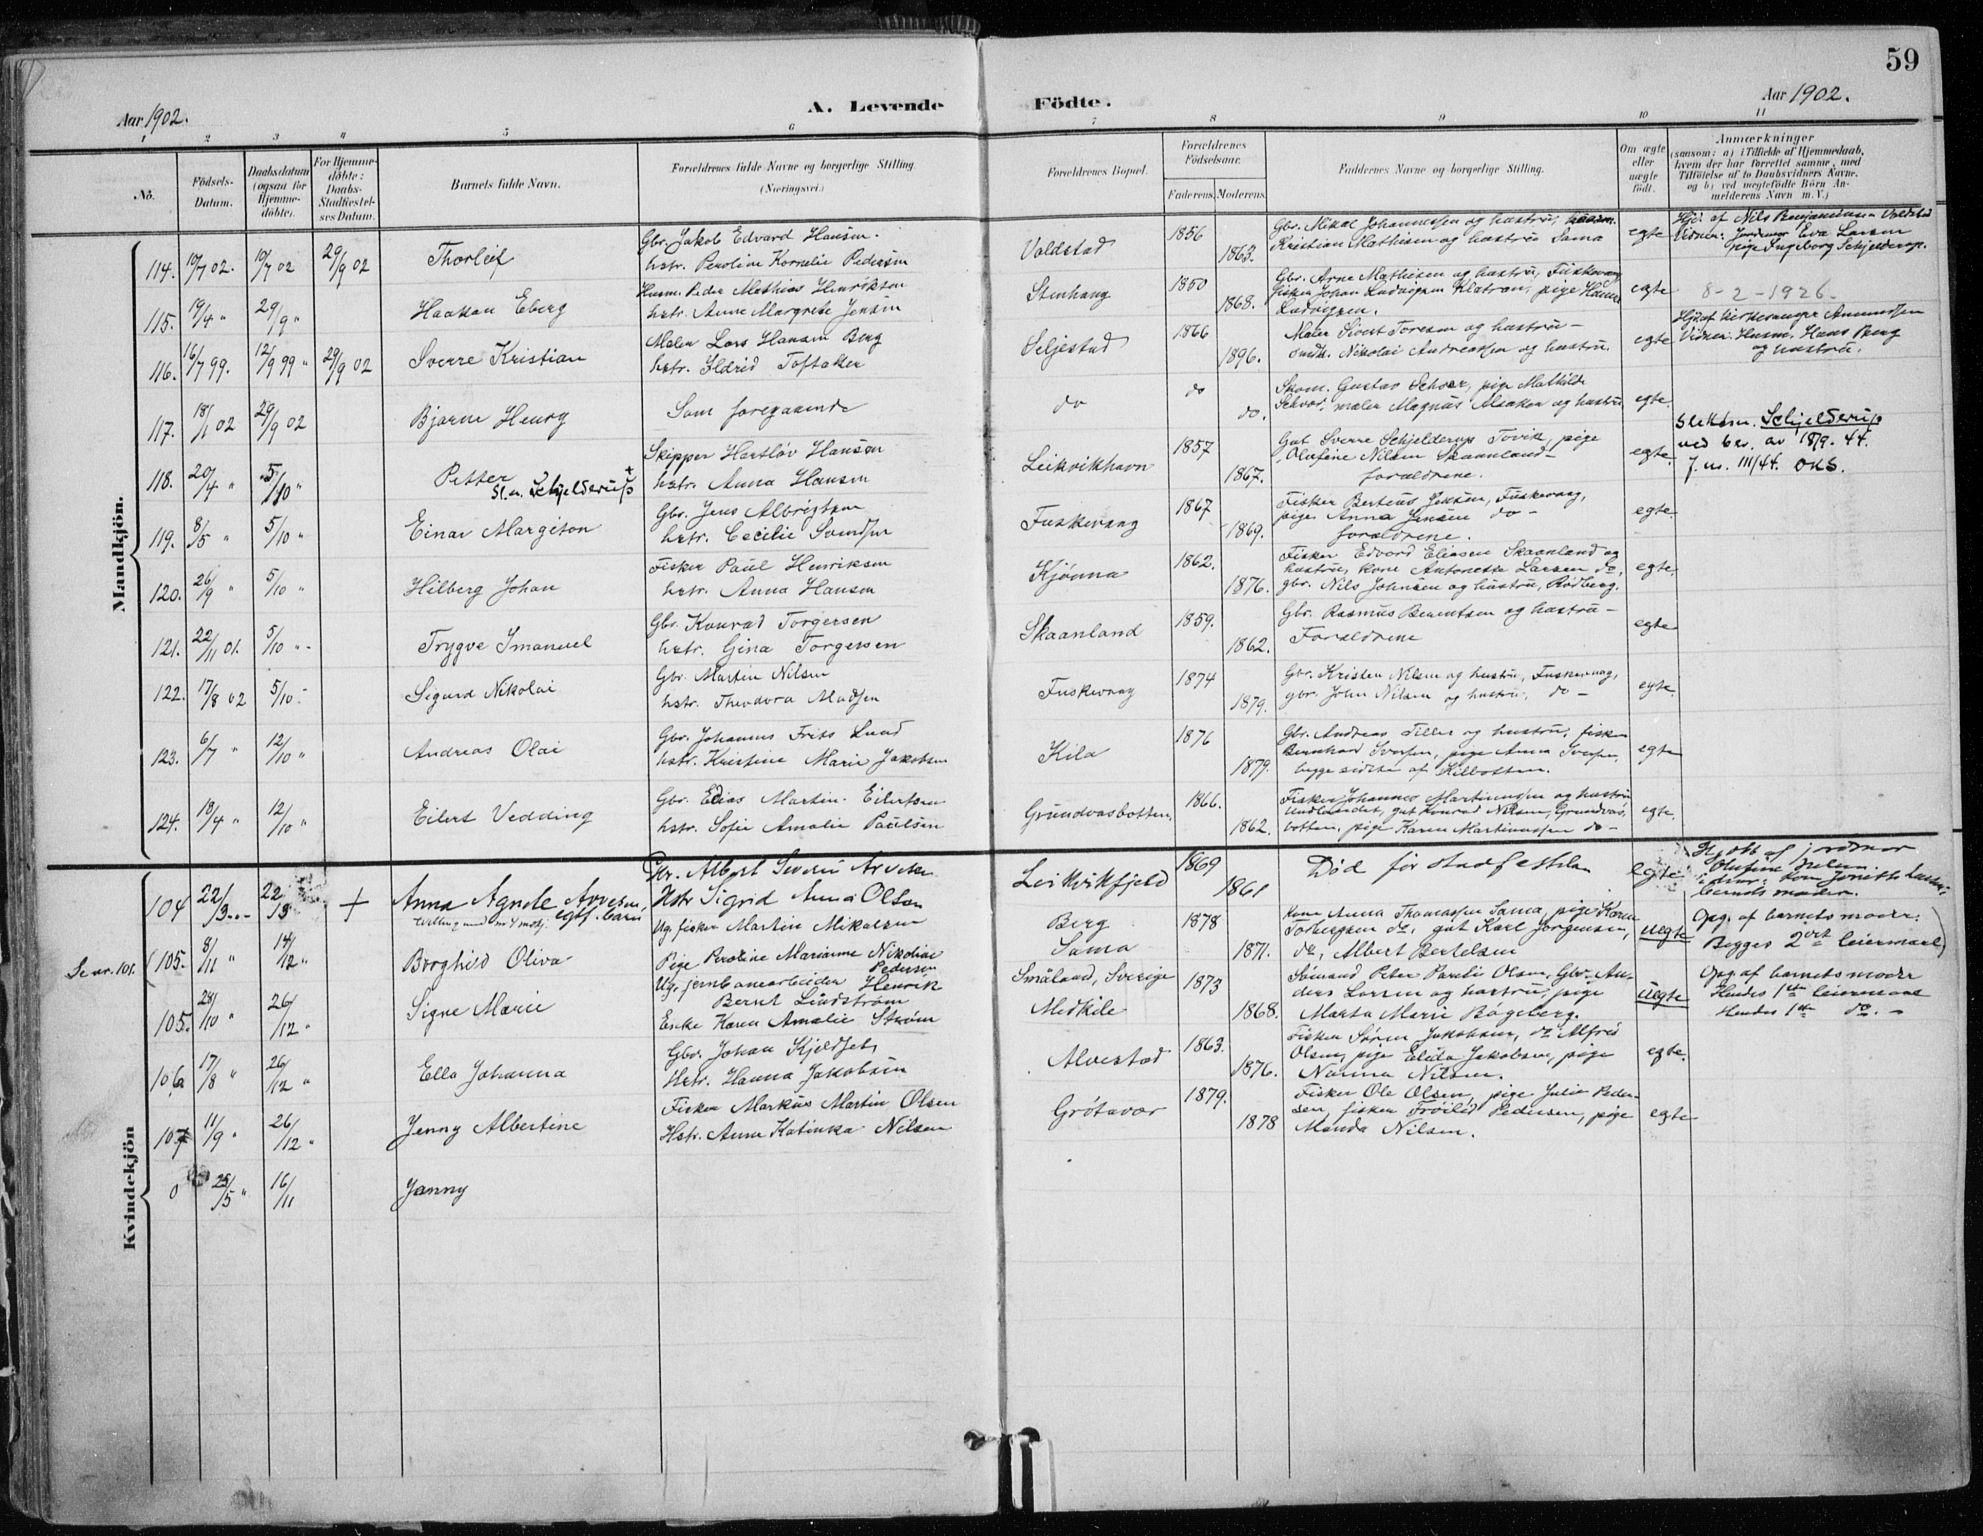 59
Aar 1902.
A. Levende Födte.
Aar 1902.
1 2 3 4 5 6 7 8 9 10 11
No.
Födsels-Datum.
Daabsdatum (ogsaa for Hjemmedöbte).
For Hjemmedöbte: Daabs-Stadfæstelses Datum.
Barnets fulde Navn.
Forældrenes fulde Navne og borgerlige Stilling. (Næringsvei.)
Forældrenes Bopæl.
Forældrenes Födselsaar.
Faderens. Moderens.
Faddernes Navne og borgerlige Stilling.
Om ægte eller uægte födt.
Anmærkninger
(saasom: a) i Tilfælde af Hjemmedaab, hvem der har forrettet samme, med Tilföielse af to Daabsvidners Navne, og b) ved uægtefödte Börn Anmelderens Navn m. V.)
Mandkjön.
114. 10/7 02. 10/7 02 29/9 02 Thorleif
Gbr. Jakob Edvard Hansen.
hstr. Peroline Kornelie Pedersen
Voldstad 1856 1863.
Gbr. Mikal Johannessen og hustru,
Kristian Mathisen og hustru Sama
egte
Hjd. af Nils Benjaminsen Voldstad
Vidner: Jordmor Eva Larsen
pige Ingeborg Schjelderup.
115. 19/4 " 29/9 " Haakon Eberg
Husm. Peder Mathias Henrikson
hstr. Anne Margrete Jensen
Stenhaug 1850 1868.
Gbr. Arne Mathisen og hustru, Fuskevaag
fisker Johan Ludvigsen Klatran, pige Hanna
Ludvigsen.
egte
8-2-1926.
116. 16/7 99. 12/9 99 " 29/9 02 Sverre Kristian
Maler Lars Hansen Berg
hstr. Ildrid Toftaker
Seljestad 1866 1896.
Maler Sivert Toresen og hustru -
smed. Nikolai Andreassen og hustru.
egte
Hjd. af kirkesanger Amundsen
Vidner: Husm. Hans Berg
og hustru.
117. 18/1 02 29/9 02 Bjarne Henry
Som foregaaende
do do do.
Skom. Gustav Schvær, pige Mathilde
Schvær, maler Magnus Alsaker og hustru
egte.
118. 20/4 " 5/10 " Petter +
Sl.n. Schjelderup
Skipper Hartløv Hansen
hstr. Anna Hansen
Leikvikhavn 1857 1867.
Gut Sverre Schjelderup Tovik, pige
Olufine Nilsen Skaanland -
forældrene.
egte.
Slektsn. Schjelderup
ved bev. av 18/9-44.
J. nr. 111/44. OKS.
119. 8/5 " 5/10 " Einar Margiton
Gbr. Jens Albrigtsen
hstr. Cecilie Svendsen
Fuskevaag 1867 1869.
Fisker Berteus Jensen, Fuskevaag,
pige Anna Jensen do -
forældrene.
egte.
120. 26/9 " 5/10 " Hilberg Johan
Fisker Paul Henriksen
hstr. Anna Hansen
Kjønna 1862. 1876.
Fisker Edvard Eliasen Skaanland og
hustru, kone Antonette Larsen do,
gbr. Nils Johnsen og hustru, Rødberg.
egte.
121. 22/11 01. 5/10 " Trygve Imanuel
Gbr. Konrad Torgersen
hstr. Gina Torgersen
Skaanland 1859. 1862.
Gbr. Rasmus Berentsen og hustru -
Forældrene
egte
122. 17/8 02 5/10 - Sigurd Nikolai
Gbr. Martin Nilsen
hstr. Theodora Madsen
Fuskevaag 1874 1879.
Gbr. Kristen Nilsen og hustru, Fuskevaag,
gbr. John Nilsen og hustru, do -
egte.
123. 6/7 " 12/10 " Andreas Olai
Gbr. Johannes Frits Lund
hstr. Kristine Marie Jakobsen
Kila 1876 1879.
Gbr. Andreas Tiller og hustru, fisker
Bernhard Iversen, pige Anna Iversen,
begge sidste af Kilbotten.
egte
124. 13/4 " 12/10 " Eilert Vedding
Gbr. Edias Martin Eilertsen
hstr. Sofie Amalie Paulsen
Grundvasbotten. 1866. 1862.
Fisker Johannes Martinussen og hustru
Undlandet, gut Konrad Nilsen, Grundvas
botten, pige Karen Martinussen do -
egte.
Kvindekjön
104 22/3 22/3 + Anna Agnete Arvesen,
egtf. barn
Gbr. Albert Severin Arvesen
Hstr Sigrid Anna Olsen
Leikvikfjeld 1869 1861
Død før stadfestelse
egte
Hj. døbt af jordmor
Olufine Nilsen.
barnets moder.
Se nr. 101. (105. 8/11 " 14/12 " Borghild Oliva
Ug. fisker Martin Mikalsen
Pige Peroline Marianne Nikoline
Pedersen
Berg 1878
Sama 1871.
Kone Anna Thomassen Sama, pige Karen
Torbergsen do, gut Karl Jørgensen,
do, Albert Bertelsen
uegte
Opg. af barnets moder.
Begges 2det leiermaal)
105. 24/10 " 26/12 " Signe Marie
Ug. jernbanearbeider Henrik
Bernt Lindstrøm
Enke Karen Amalie Strøm
Småland, Sverige 1873
Medkile 1868.
Sømand Peter Pareli Olsen, Gbr. An-
ders Larsen og hustru, pige
Marta Marie Bogeberg.
Uegte
Opg. af barnets moder
Hendes 1ste leiermaal
Hendes 1ste do. -
106 17/8 " 26/12 " Ella Johanna
Gbr. Johan Kjeldsen
Hstr. Hanna Jakobsen
Alvestad 1863. 1876.
Fisker Søren Jakobsen, do Alfred
Olsen, pige Elida Jakobsen, pige
Nanna Nilsen.
egte.
107 11/9 " 26/12 " Jenny Albertine
Fisker Markus Martin Olsen
Hstr. Anne Katinka Nilsen
Grøtavær 1879. 1878
Fisker Ole Olsen, pige Julie Peder-
sen, fisker Frøilid Pedersen, pige
Manda Nilsen.
egte
0 25/5 " 16/11 Janny